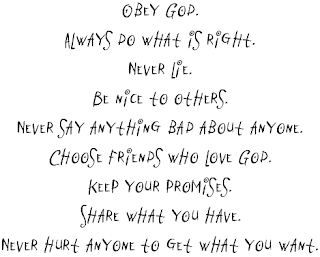 OBEY GOD.
ALWAYS DO WHAT IS RIGHT.
NEVER LIE.
BE NICE TO OTHERS.
NEVER SAY ANYTHING BAD ABOUT ANYONE.
CHOOSE FRIENDS WHO LOVE GOD.
KEEP YOUR PROMISES.
SHARE WHAT YOU HAVE.
NEVER HURT ANYONE TO GET WHAT YOU WANT.